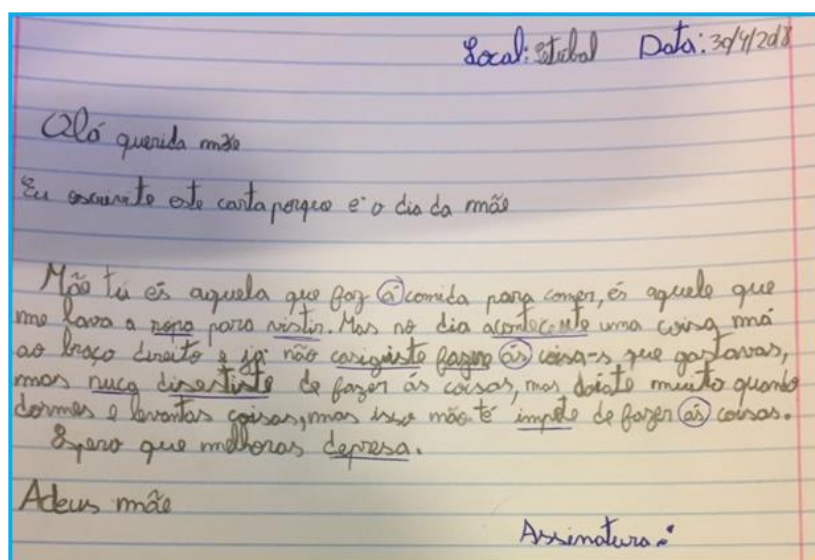 Local: Setubal Data: 30/4/2018
Olá querida mãe
Eu escrivite este carta porque e' o dia da mãe
Mãe tu és aquela que faz á comida para comer, és aquele que
me lava a ropa para vistir. Mas no dia acontecente uma coisa má
ao braço direito e já não cosigiste fazere ás coisa-s que gostavas,
mas nuca disestiste de fazer ás coisas, mas doiste muito quando
dormes e levantas coisas, mas isso não té impete de fazer ás coisas.
Espero que melhoras depresa.
Adeus mãe
Assinatura: